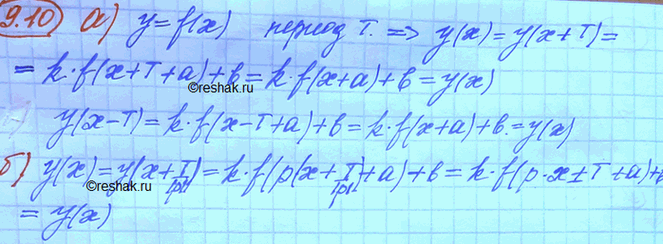 9.10 а) y=f(x) период T. => y(x)=y(x+T)=
= k·f(x+T+a)+b=k·f(x+a)+b=y(x)
©reshak.ru
y(x-T)=k·f(x-T+a)+b=k·f(x+a)+b.=y(x)
б) y(x)=y(x+T/|p|)=k·f(p(x+T/|p|)+a)+b=k·f(p·x±T+a)+b
©reshak.ru
= y(x)